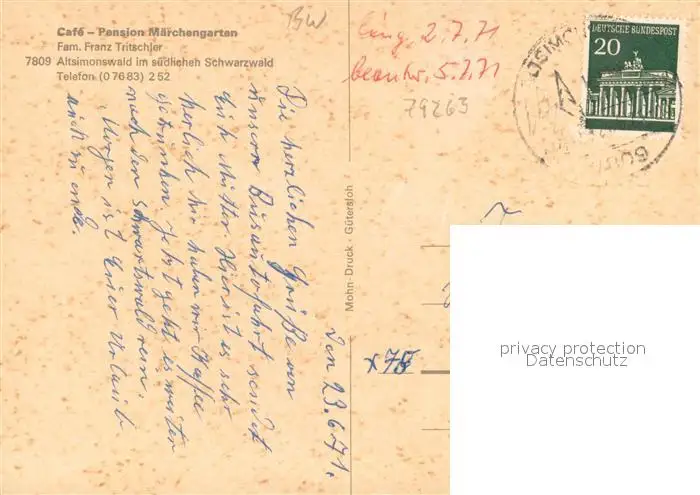 Café – Pension Märchengarten
Fam. Franz Tritschler
7809 Altsimonswald im südlichen Schwarzwald
Telefon (0 76 83) 2 52
BW
eing. 2.7.71
beantw. 5.7.71
79263
DEUTSCHE BUNDESPOST
20
Den 23.6.71.
Die herzlichen Grüße von
unserer Busautofahrt sendet
Euch Mutter Hier ist es sehr
herlich hir haben wir Kaffee
getrunken jetzt geht es weiter
nach den schwartswald rein.
Morgen ist Euer Urlaub
auch zu ende.
Mohn-Druck · Gütersloh
x 75
privacy protection
Datenschutz